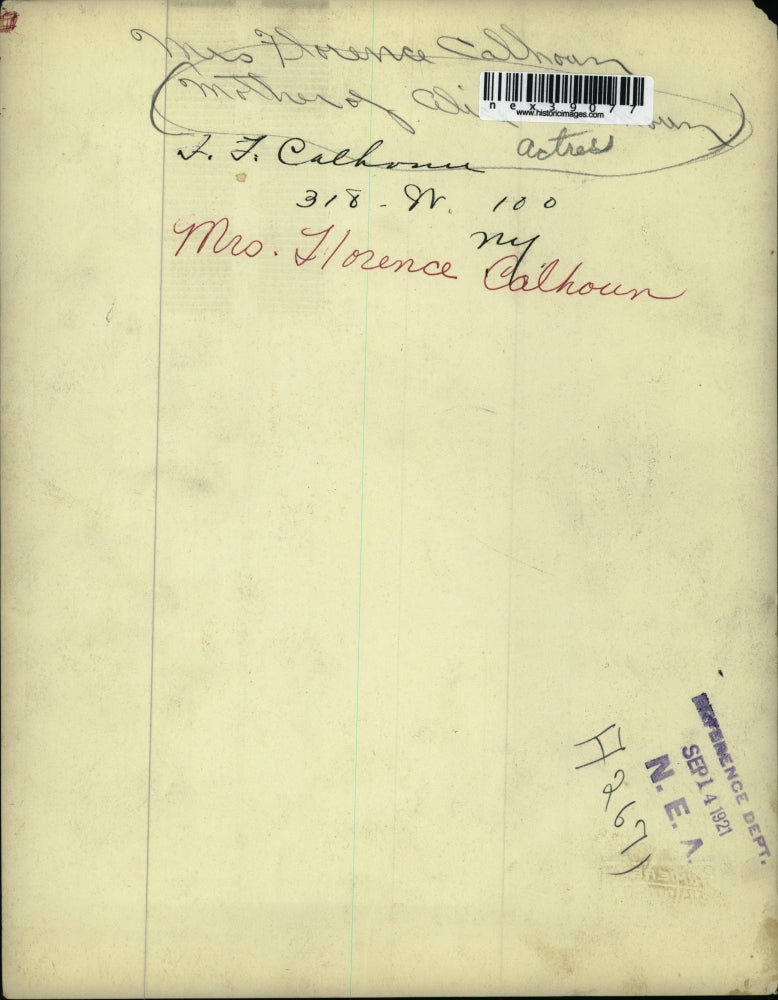 Mrs Florence Calhoun
(Mother of
actress)
nex39077
www.historicimages.com
F. Calhoun
318 - W. 100
NY
Mrs. Florence Calhoun
REFERENCE DEPT.
SEP 14 1921
N. E. A.